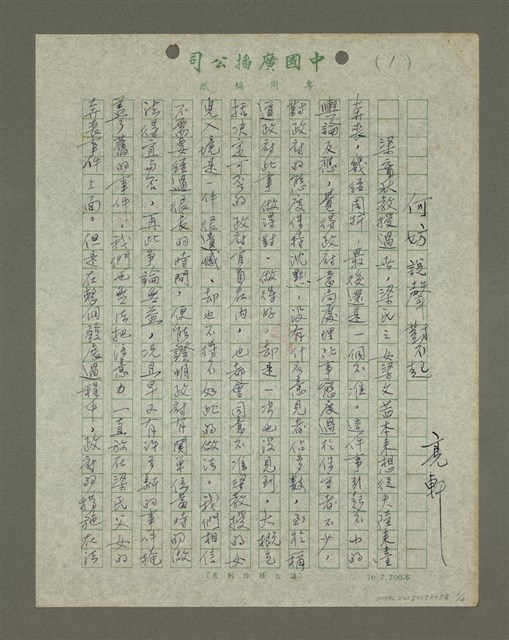 中國廣播公司
專用稿紙
(1)
何妨說聲對不起
亮軒
梁實秋教授過世，梁氏之女梁文茜本來想從大陸來臺
奔喪，幾經周折，最後還是一個不准。這件事引起不小的
輿論反應，覺得政府當局處理此事態度過於保守者不少，
對政府的態度保持沈默，沒有什麼意見者佔多數，至於稱
道政府此事做得對、做得好，却是一次也沒見到。大概包
括決定可否的政府官員在內，也都曾同意不准梁教授的女
兒入境是一件很遺憾、却也不得不如此的做法。我們相信
不需要經過很長的時間，便能證明政府有關單位當時的做
法得宜與否，再此事論無益，況且早又有許多新的事件掩
蓋了舊的事件，我們也無法把注意力一直放在梁氏父女的
奔喪事件上面。但是在整個發展過程中，政府的措施在法
76.7.200本